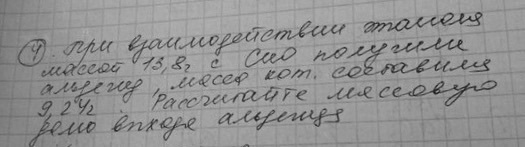 ④. При взаимодействии этанола
массой 13,8г с CuO получили
альдегид, масса кот. составила
9,24г. Рассчитайте массовую
долю выхода альдегида